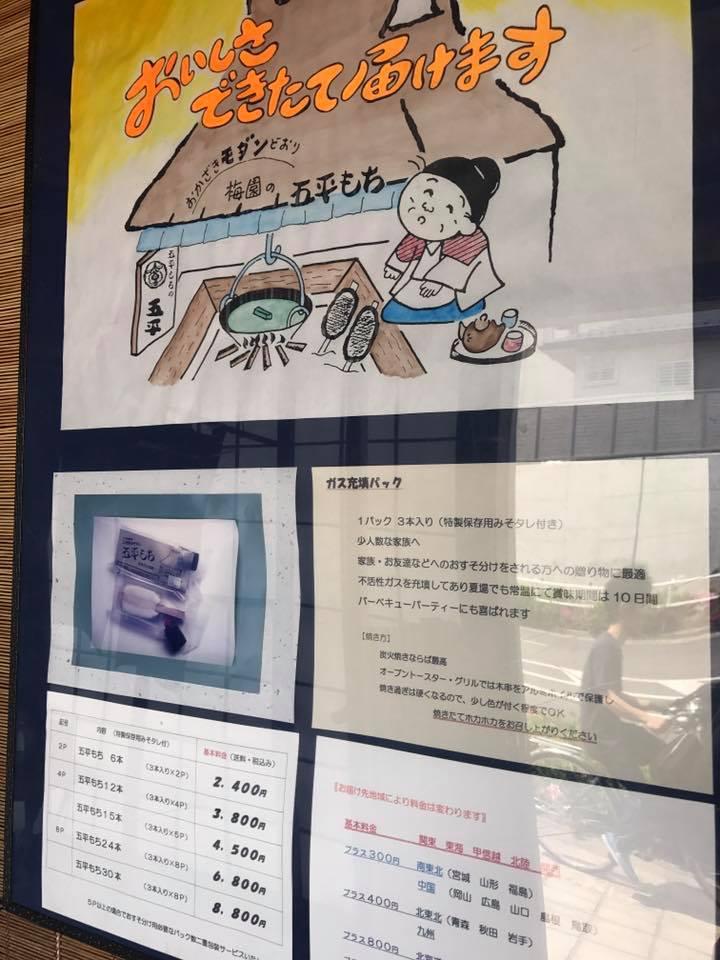 おいしさ
できたて届けます
おかざきモダンどおり
梅園の五平もち
五平もちの
五平
五平もち
ガス充填パック
1パック 3本入り（特製保存用みそタレ付き）
少人数な家族へ
家族・お友達などへのおすそ分けをされる方への贈り物に最適
不活性ガスを充填してあり夏場でも常温にて賞味期間は10日間
バーベキューパーティーにも喜ばれます
［焼き方］
炭火焼きならば最高
オーブントースター・グリルでは木串をアルミホイルで保護し
焼き過ぎは硬くなるので、少し色が付く程度でOK
焼きたてホカホカをお召し上がりください
記号 内容 （特製保存用みそタレ付） 基本料金（送料・税込み）
2P 五平もち 6本 （3本入り×2P） 2.400円
4P 五平もち12本 （3本入り×4P） 3.800円
五平もち15本 （3本入り×5P） 4.500円
8P 五平もち24本 （3本入り×8P） 6.800円
五平もち30本 （3本入り×8P） 8.800円
5P以上の場合でおすそ分け用必要なパック数二重包装サービスいた
『お届け先地域により料金は変わります』
基本料金 関東 東海 甲信越 北陸
プラス300円 南東北（宮城 山形 福島）
中国 （岡山 広島 山口 島根 鳥取）
プラス400円 北東北（青森 秋田 岩手）
九州
プラス800円